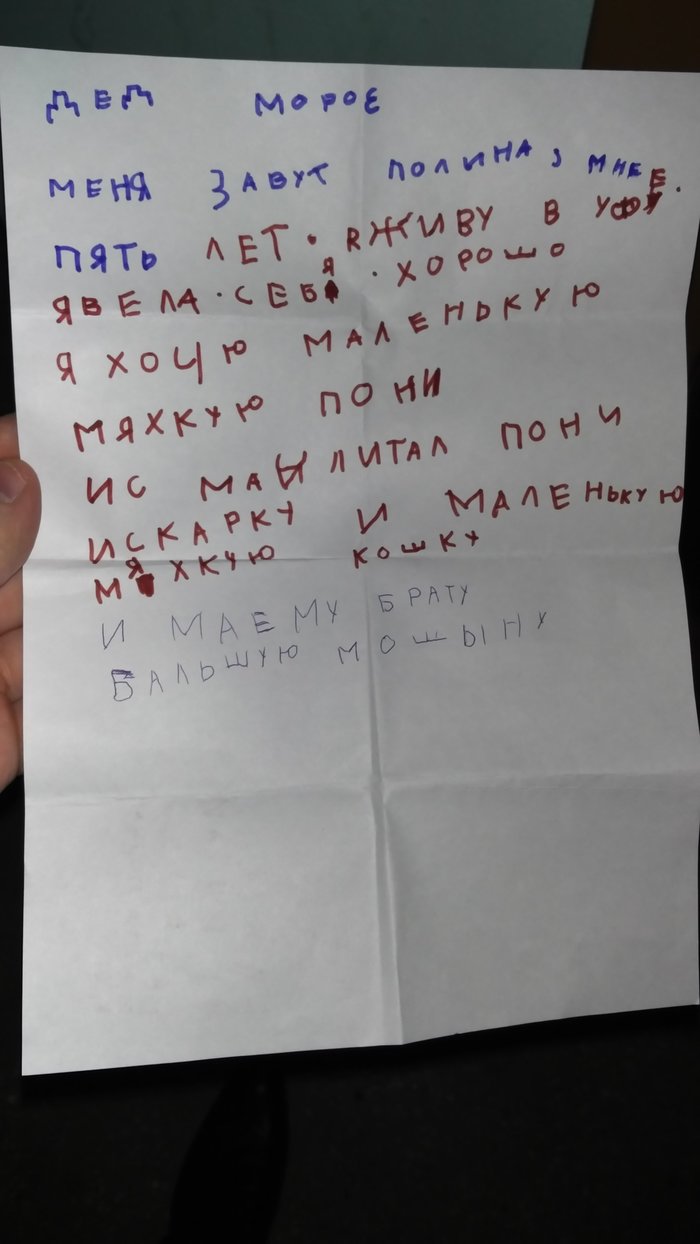 ДЕД МОРОЕ
МЕНЯ ЗАВУТ ПОЛИНА, МНЕ
ПЯТЬ ЛЕТ. ЯЖИВУ В УФЕ.
ЯВЕЛА. СЕБЯ. ХОРОШО
Я ХОЧУЮ МАЛЕНЬКУЮ
МЯХКУЮ ПОНИ
ИС МАЫ ЛИТАЛ ПОНИ
ИСКАРКУ И МАЛЕНЬКУЮ
МЯХКУЮ КОШКУ
И МАЕМУ БРАТУ
БАЛЬШУЮ МОШЫНУ